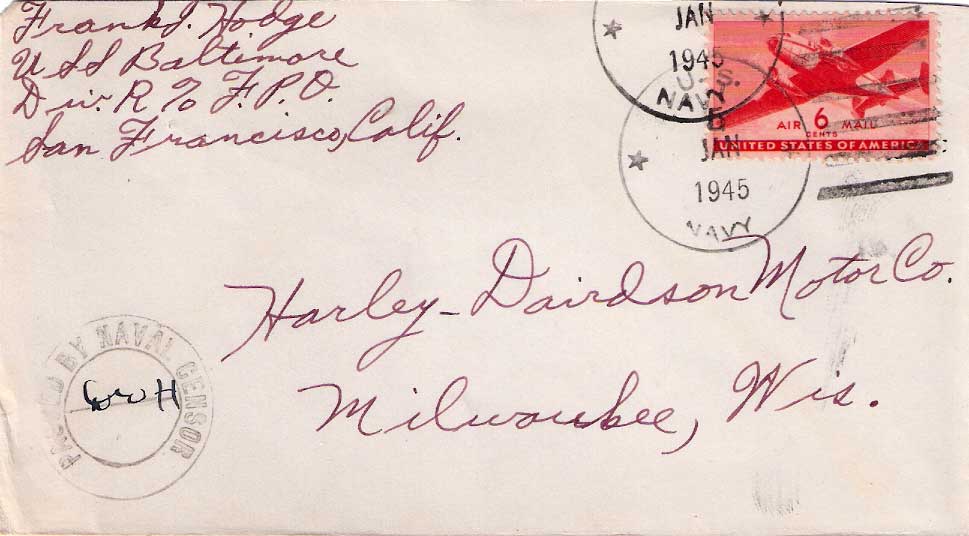 Frank J. Hodge
USS Baltimore
Div. R % F.P.O.
San Francisco, Calif.
JAN
1945
NAVY
U.S.
5
JAN
1945
NAVY
AIR 6 MAIL
CENTS
UNITED STATES OF AMERICA
Harley-Dairdson Motor Co.
Milwaukee, Wis.
PASSED BY NAVAL CENSOR